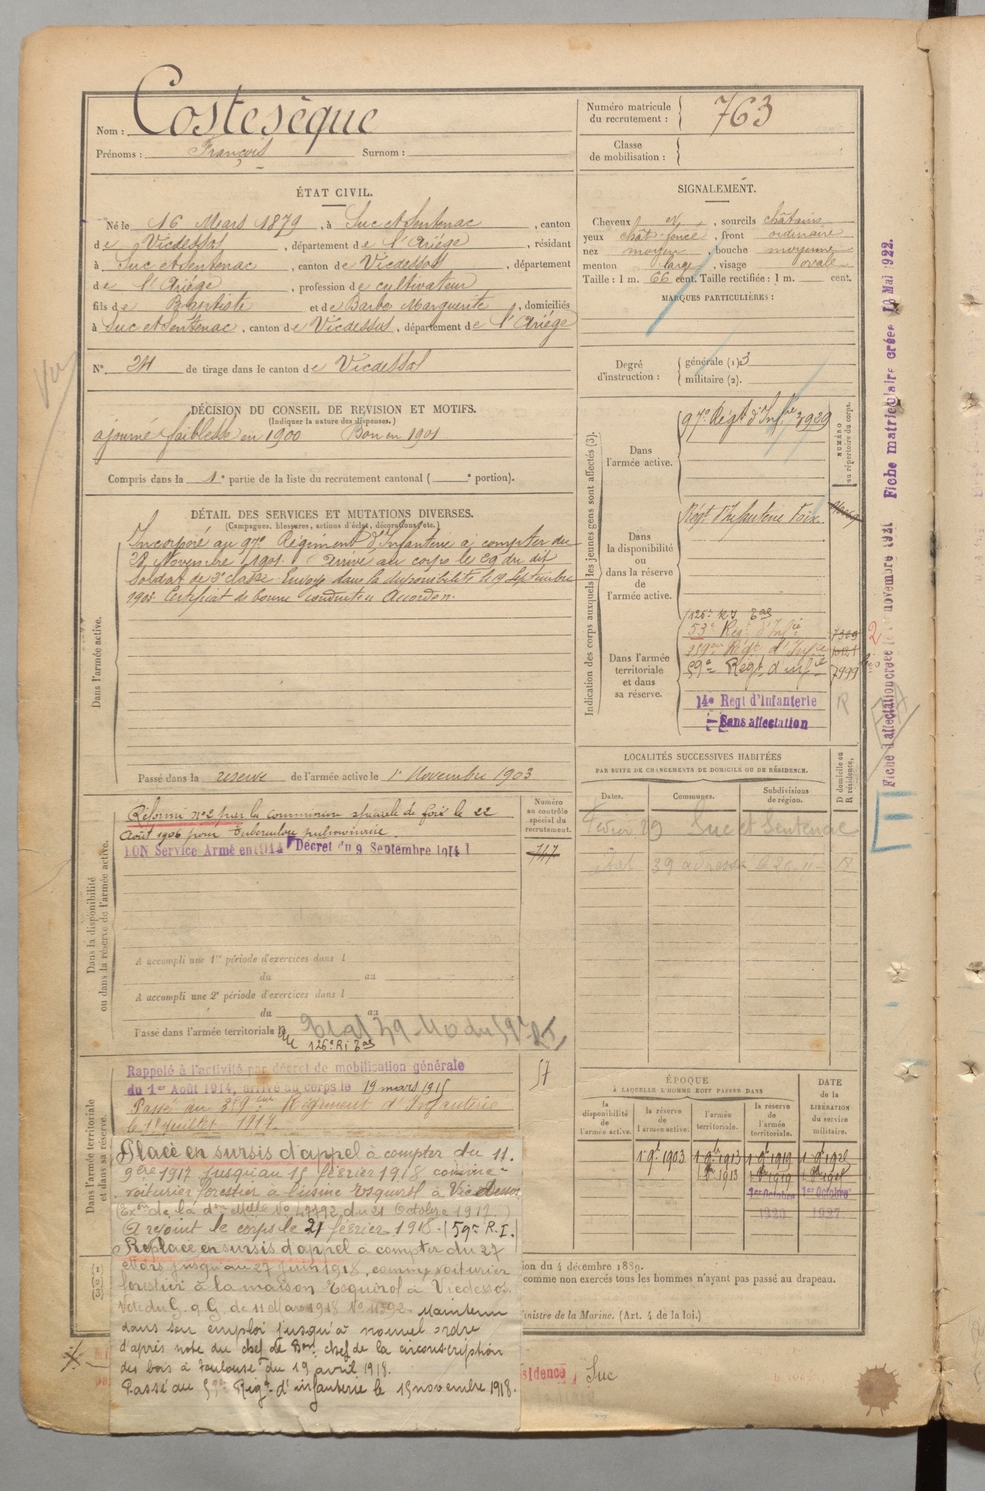 Nom : Costesèque
Prénoms : François Surnom :
Numéro matricule du recrutement : 763
Classe de mobilisation :
ÉTAT CIVIL.
Né le 16 Mars 1879, à Suc et Sentenac, canton
de Vicdessos, département de l'Ariége, résidant
à Suc et Sentenac, canton de Vicdessos, département
de l'Ariége, profession de cultivateur
fils de Baptiste et de Barbe Marguerite, domiciliés
à Suc et Sentenac, canton de Vicdessos, département de l'Ariége
N° 24 de tirage dans le canton de Vicdessos
DÉCISION DU CONSEIL DE REVISION ET MOTIFS.
(Indiquer la nature des dispenses.)
ajourné faiblesse en 1900 Bon en 1901
Compris dans la 1e partie de la liste du recrutement cantonal ( e portion).
DÉTAIL DES SERVICES ET MUTATIONS DIVERSES.
(Campagnes, blessures, actions d'éclat, décorations, etc.)
Dans l'armée active.
Incorporé au 97e Régiment d'Infanterie à compter du
Novembre 1901. Arrivé au corps le et du dit
Soldat de 2e classe. Envoyé dans la disponibilité le 19 Septembre
Certificat de bonne conduite Accordé.
Passé dans la réserve de l'armée active le 1er Novembre 1903
Dans la disponibilité ou dans la réserve de l'armée active.
Réformé n°2 par la commission spéciale de foix le 22
Août 1906 pour tuberculose pulmonaire.
BON Service Armé en 1914 Décret du 9 Septembre 1914
A accompli une 1re période d'exercices dans l
du au
A accompli une 2e période d'exercices dans l
du au
Passé dans l'armée territoriale
126e RI
Numéro au contrôle spécial du recrutement.
747
57
Dans l'armée territoriale et dans sa réserve.
Rappelé à l'activité par décret de mobilisation générale
du 1er Août 1914, arrivé au corps le 19 mars 1915
Passé au 359eme Régiment d'Infanterie
le 1er juillet 1917.
Placé en sursis d'appel à compter du 11.
9bre 1917 jusqu'au 15 février 1918 comme
voiturier forestier à l'usine Esquirol à Vicdessos
(Ex de la don Mlle No 47172 du 21 Octobre 1917.)
A rejoint le corps le 21 février 1918. (59e R.I.)
Replacé en sursis d'appel à compter du 27
Mars jusqu'au 27 juin 1918, comme voiturier
forestier à la maison Esquirol à Vicdessos.
Note du G.q.G. de 11 Mars 1918 No 11392. Maintenu
dans son emploi jusqu'à nouvel ordre
d'après note du chef de Bon chef de la circonscription
des bois à Toulouse du 19 avril 1918.
Passé au 59e Régt d'infanterie le 15 novembre 1918.
SIGNALEMENT.
Cheveux, sourcils châtains
yeux chât foncé, front ordinaire
nez moyen, bouche moyenne
menton large, visage ovale
Taille : 1 m. 66 cent. Taille rectifiée : 1 m. cent.
MARQUES PARTICULIÈRES :
Degré d'instruction : générale (1) 3
militaire (2).
Indication des corps auxquels les jeunes gens sont affectés (3).
NUMÉRO au répertoire du corps.
Dans l'armée active.
97e Régt d'Infie 3929
Dans la disponibilité ou dans la réserve de l'armée active.
Régt d'Infanterie Foix
Dans l'armée territoriale et dans sa réserve.
126e RI
53e Régt d'Infie
359e Régt d'Infie
59e Régt d'infie
14e Regt d'Infanterie
Sans affectation
R
LOCALITÉS SUCCESSIVES HABITÉES
PAR SUITE DE CHANGEMENTS DE DOMICILE OU DE RÉSIDENCE.
Dates. Communes. Subdivisions de région. D domicile ou R résidence.
Février 29 Suc et Sentenac
ÉPOQUE
À LAQUELLE L'HOMME DOIT PASSER DANS
la disponibilité de l'armée active. la réserve de l'armée active. l'armée territoriale. la réserve de l'armée territoriale.
DATE de la LIBÉRATION du service militaire.
1 9bre 1903 1 9bre 1913 1 9bre 1919
1er Octobre 1er Octobre
1920 1927
ion du 4 décembre 1889.
comme non exercés tous les hommes n'ayant pas passé au drapeau.
inistre de la Marine. (Art. 4 de la loi.)
sidence, Suc
Fiche d'affectation créée le novembre 1921
Fiche matriculaire créée 10 Mai 1922.